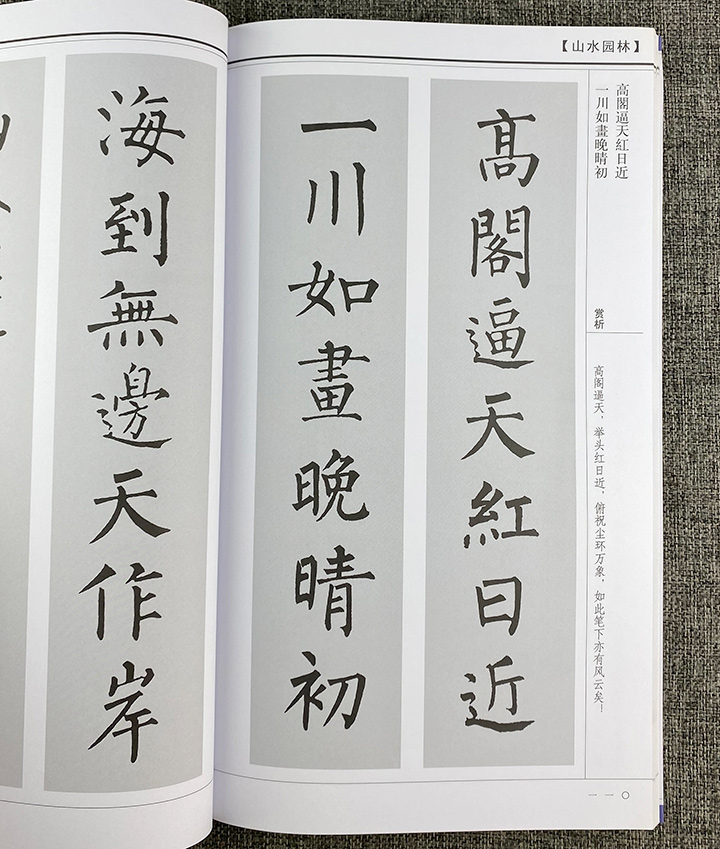 【山水园林】
高閣逼天紅日近
一川如畫晚晴初
赏析
高阁逼天，举头红日近，俯祝尘环万象，如此笔下亦有风云矣！
高閣逼天紅日近
一川如畫晚晴初
一一〇
海到無邊天作岸